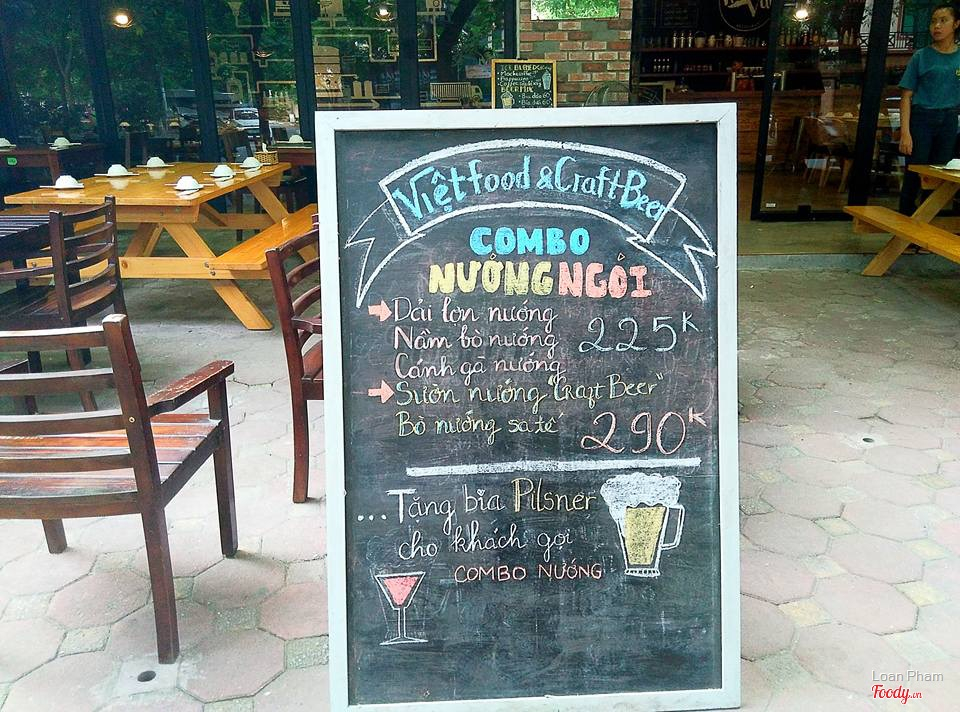 ICE BLENDED
Việt food & Craft Beer
COMBO
NƯỚNG NGÓI
Dải lợn nướng
Nầm bò nướng
225K
Cánh gà nướng
Sườn nướng "Craft Beer"
Bò nướng sa tế
290K
...Tặng bia Pilsner
cho khách gọi
COMBO NƯỚNG
Loan Pham
Foody.vn